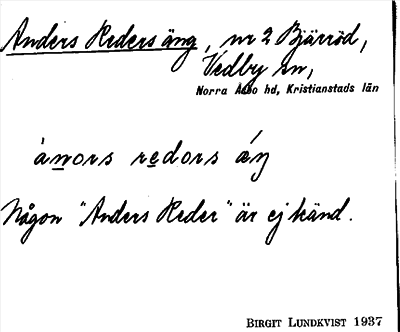 Anders Reders äng, nr 2 Bjärröd,
Vedby sn,
Norra Åsbo hd, Kristianstads län
ànors redors ǽŋ
Någon "Anders Reder" är ej känd.
BIRGIT LUNDKVIST 1937